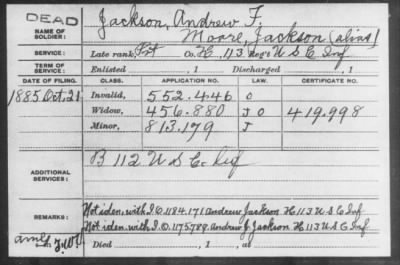 DEAD
Jackson, Andrew F.
NAME OF SOLDIER: Moore, Jackson (alias)
SERVICE: Late rank, Pvt Co. H, 113 Reg't U S C Inf
TERM OF SERVICE: Enlisted , 1 Discharged , 1
DATE OF FILING. CLASS. APPLICATION NO. LAW. CERTIFICATE NO.
1885 Oct. 21 Invalid, 552.446 O
Widow, 456.880 J O 419.998
Minor, 813.179 J
ADDITIONAL SERVICES: B 112 U S C Inf
REMARKS: Not iden. with I.O. 1184.171 Andrew Jackson H 113 U S C Inf
Not iden. with I.O. 1175788 Andrew J. Jackson H 113 U S C Inf
Died , 1 , at